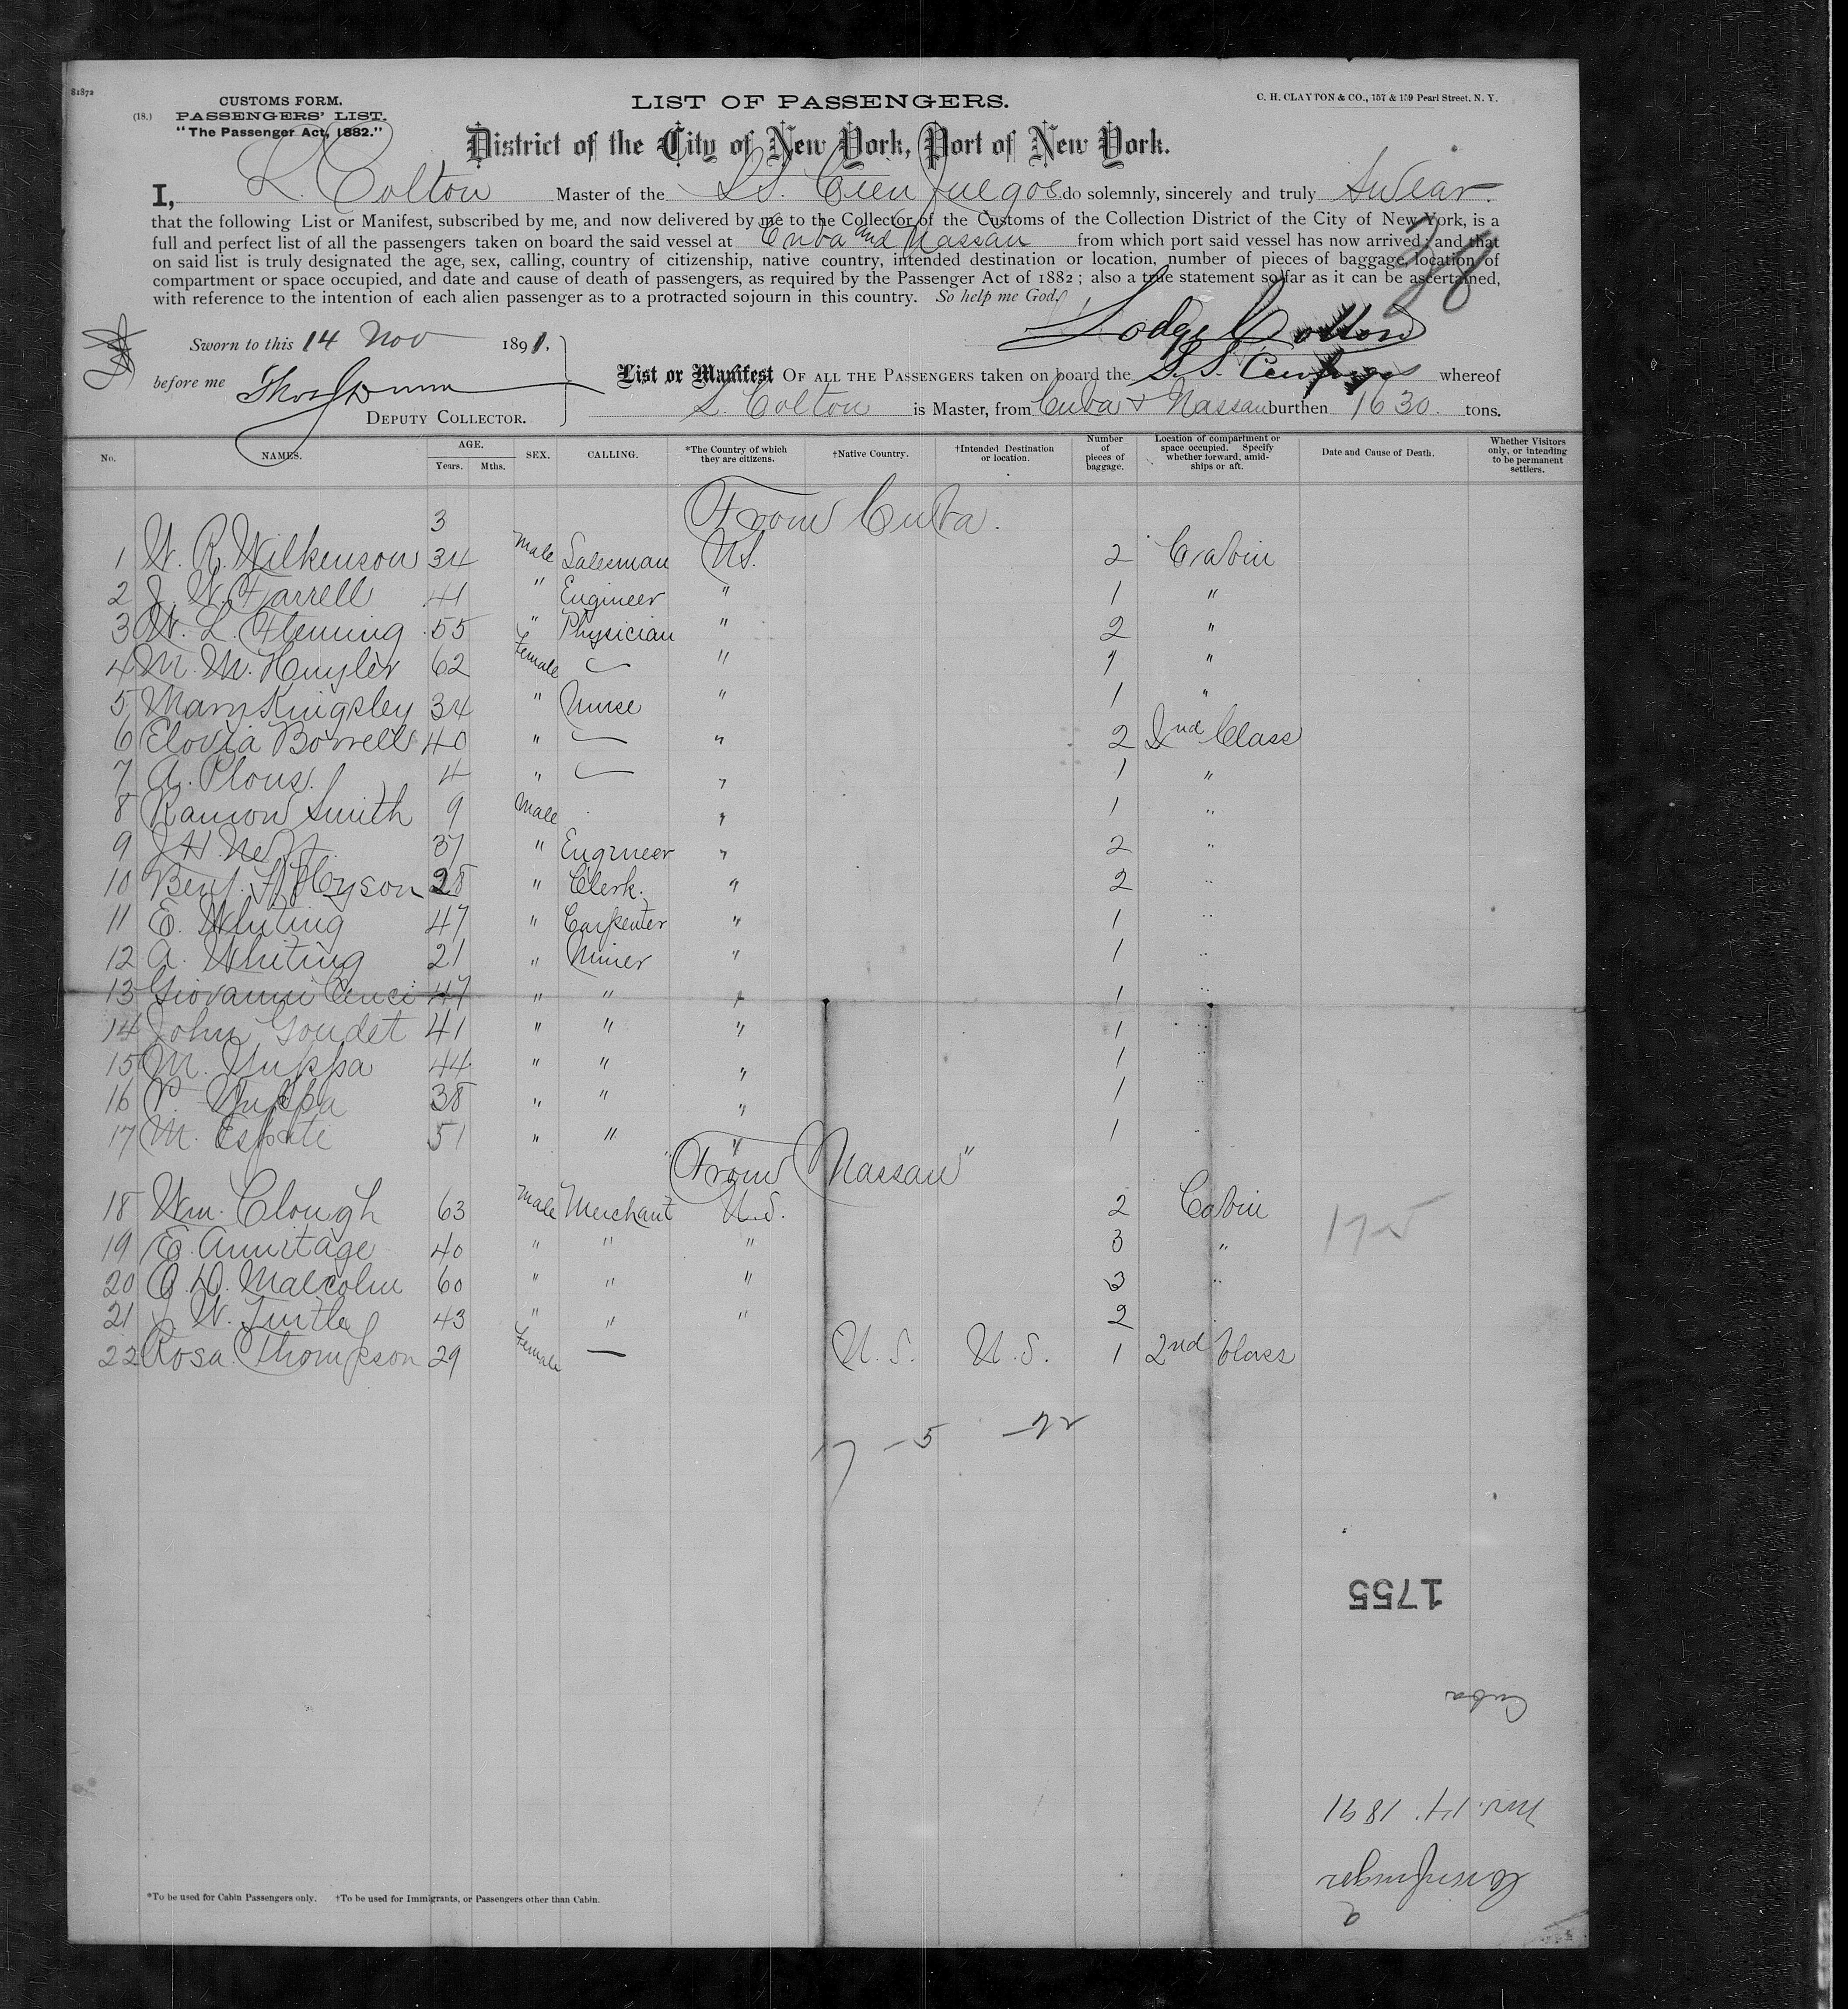 81872
(18.)
CUSTOMS FORM.
PASSENGERS' LIST.
"The Passenger Act, 1882."
LIST OF PASSENGERS.
C. H. CLAYTON & CO., 157 & 159 Pearl Street, N. Y.
District of the City of New York, Port of New York.
I, L. Colton Master of the S.S. Cienfuegos do solemnly, sincerely and truly Swear
that the following List or Manifest, subscribed by me, and now delivered by me to the Collector of the Customs of the Collection District of the City of New York, is a
full and perfect list of all the passengers taken on board the said vessel at Cuba and Nassau from which port said vessel has now arrived; and that
on said list is truly designated the age, sex, calling, country of citizenship, native country, intended destination or location, number of pieces of baggage, location of
compartment or space occupied, and date and cause of death of passengers, as required by the Passenger Act of 1882; also a true statement so far as it can be ascertained,
with reference to the intention of each alien passenger as to a protracted sojourn in this country. So help me God.
Sworn to this 14 Nov 1891,
Colton
before me
DEPUTY COLLECTOR.
List or Manifest OF ALL THE PASSENGERS taken on board the S.S. Cienfuegos whereof
L. Colton is Master, from Cuba & Nassau burthen 1630. tons.
No. NAMES. AGE. Years. Mths. SEX. CALLING. *The Country of which they are citizens. †Native Country. †Intended Destination or location. Number of pieces of baggage. Location of compartment or space occupied. Specify whether forward, amidships or aft. Date and Cause of Death. Whether Visitors only, or intending to be permanent settlers.
3 From Cuba.
1 W. R. Wilkenson 34 Male Salesman U.S. 2 Cabin
2 J. W. Farrell 41 " Engineer " 1 "
3 W. L. Fleming 55 " Physician " 2 "
4 M. M. Huyler 62 Female " 1 "
5 Mary Kingsley 34 " Nurse " 1 "
6 Borrell 40 " " 2 2nd Class
7 A. Plous. 4 " " 1 "
8 Ramon Smith 9 Male " 1 "
9 J. H. 37 " Engineer " 2 "
10 Benj. Hyson 28 " Clerk. " 2 "
11 E. Whiting 47 " Carpenter " 1 "
12 A. Whiting 21 " Miner " 1 "
13 Giovanni Cenci 47 " " " 1 "
14 John Goudet 41 " " " 1 "
15 M. 44 " " " 1 "
16 P. 38 " " " 1 "
17 M. 51 " " " 1 "
"From Nassau"
18 Wm. Clough 63 Male Merchant U.S. 2 Cabin
19 E. Armitage 40 " " " 3 "
20 O. D. Malcolm 60 " " " 3 "
21 J. W. Turtle 43 " " " 2
22 Rosa Thompson 29 Female — U.S. U.S. 1 2nd Class
1755
Cuba
Nov. 14. 1891
Cienfuegos
*To be used for Cabin Passengers only. †To be used for Immigrants, or Passengers other than Cabin.